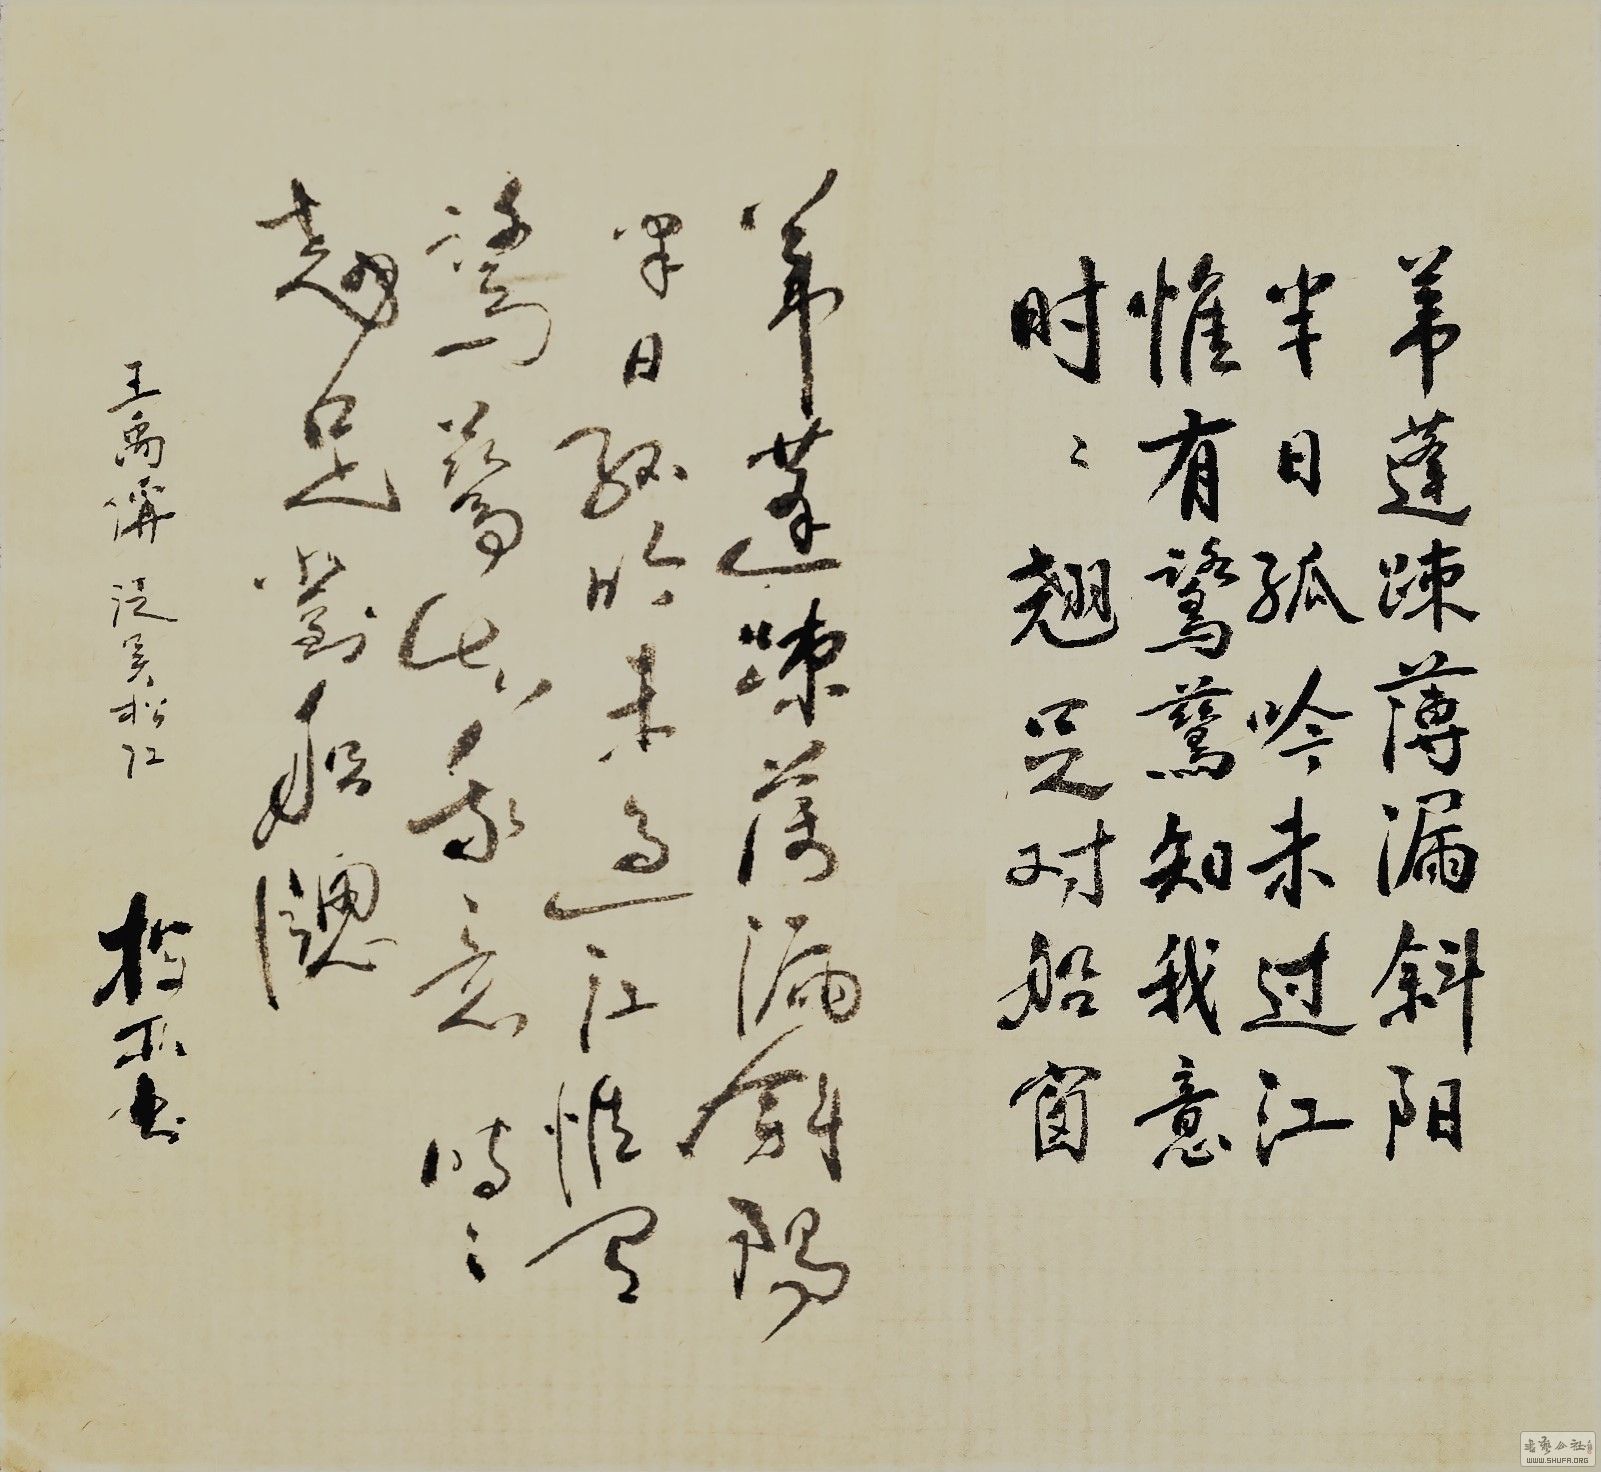 苇蓬疎薄漏斜阳
半日孤吟未过江
惟有鹭鸶知我意
时〻翘足对船窗
葦蓬疎薄漏斜陽
半日孤吟未過江惟有
鷺鷥知我意時〻
翹足對船窗
王禹偁 泛吴松江
书
书艺公社
WWW.SHUFA.ORG